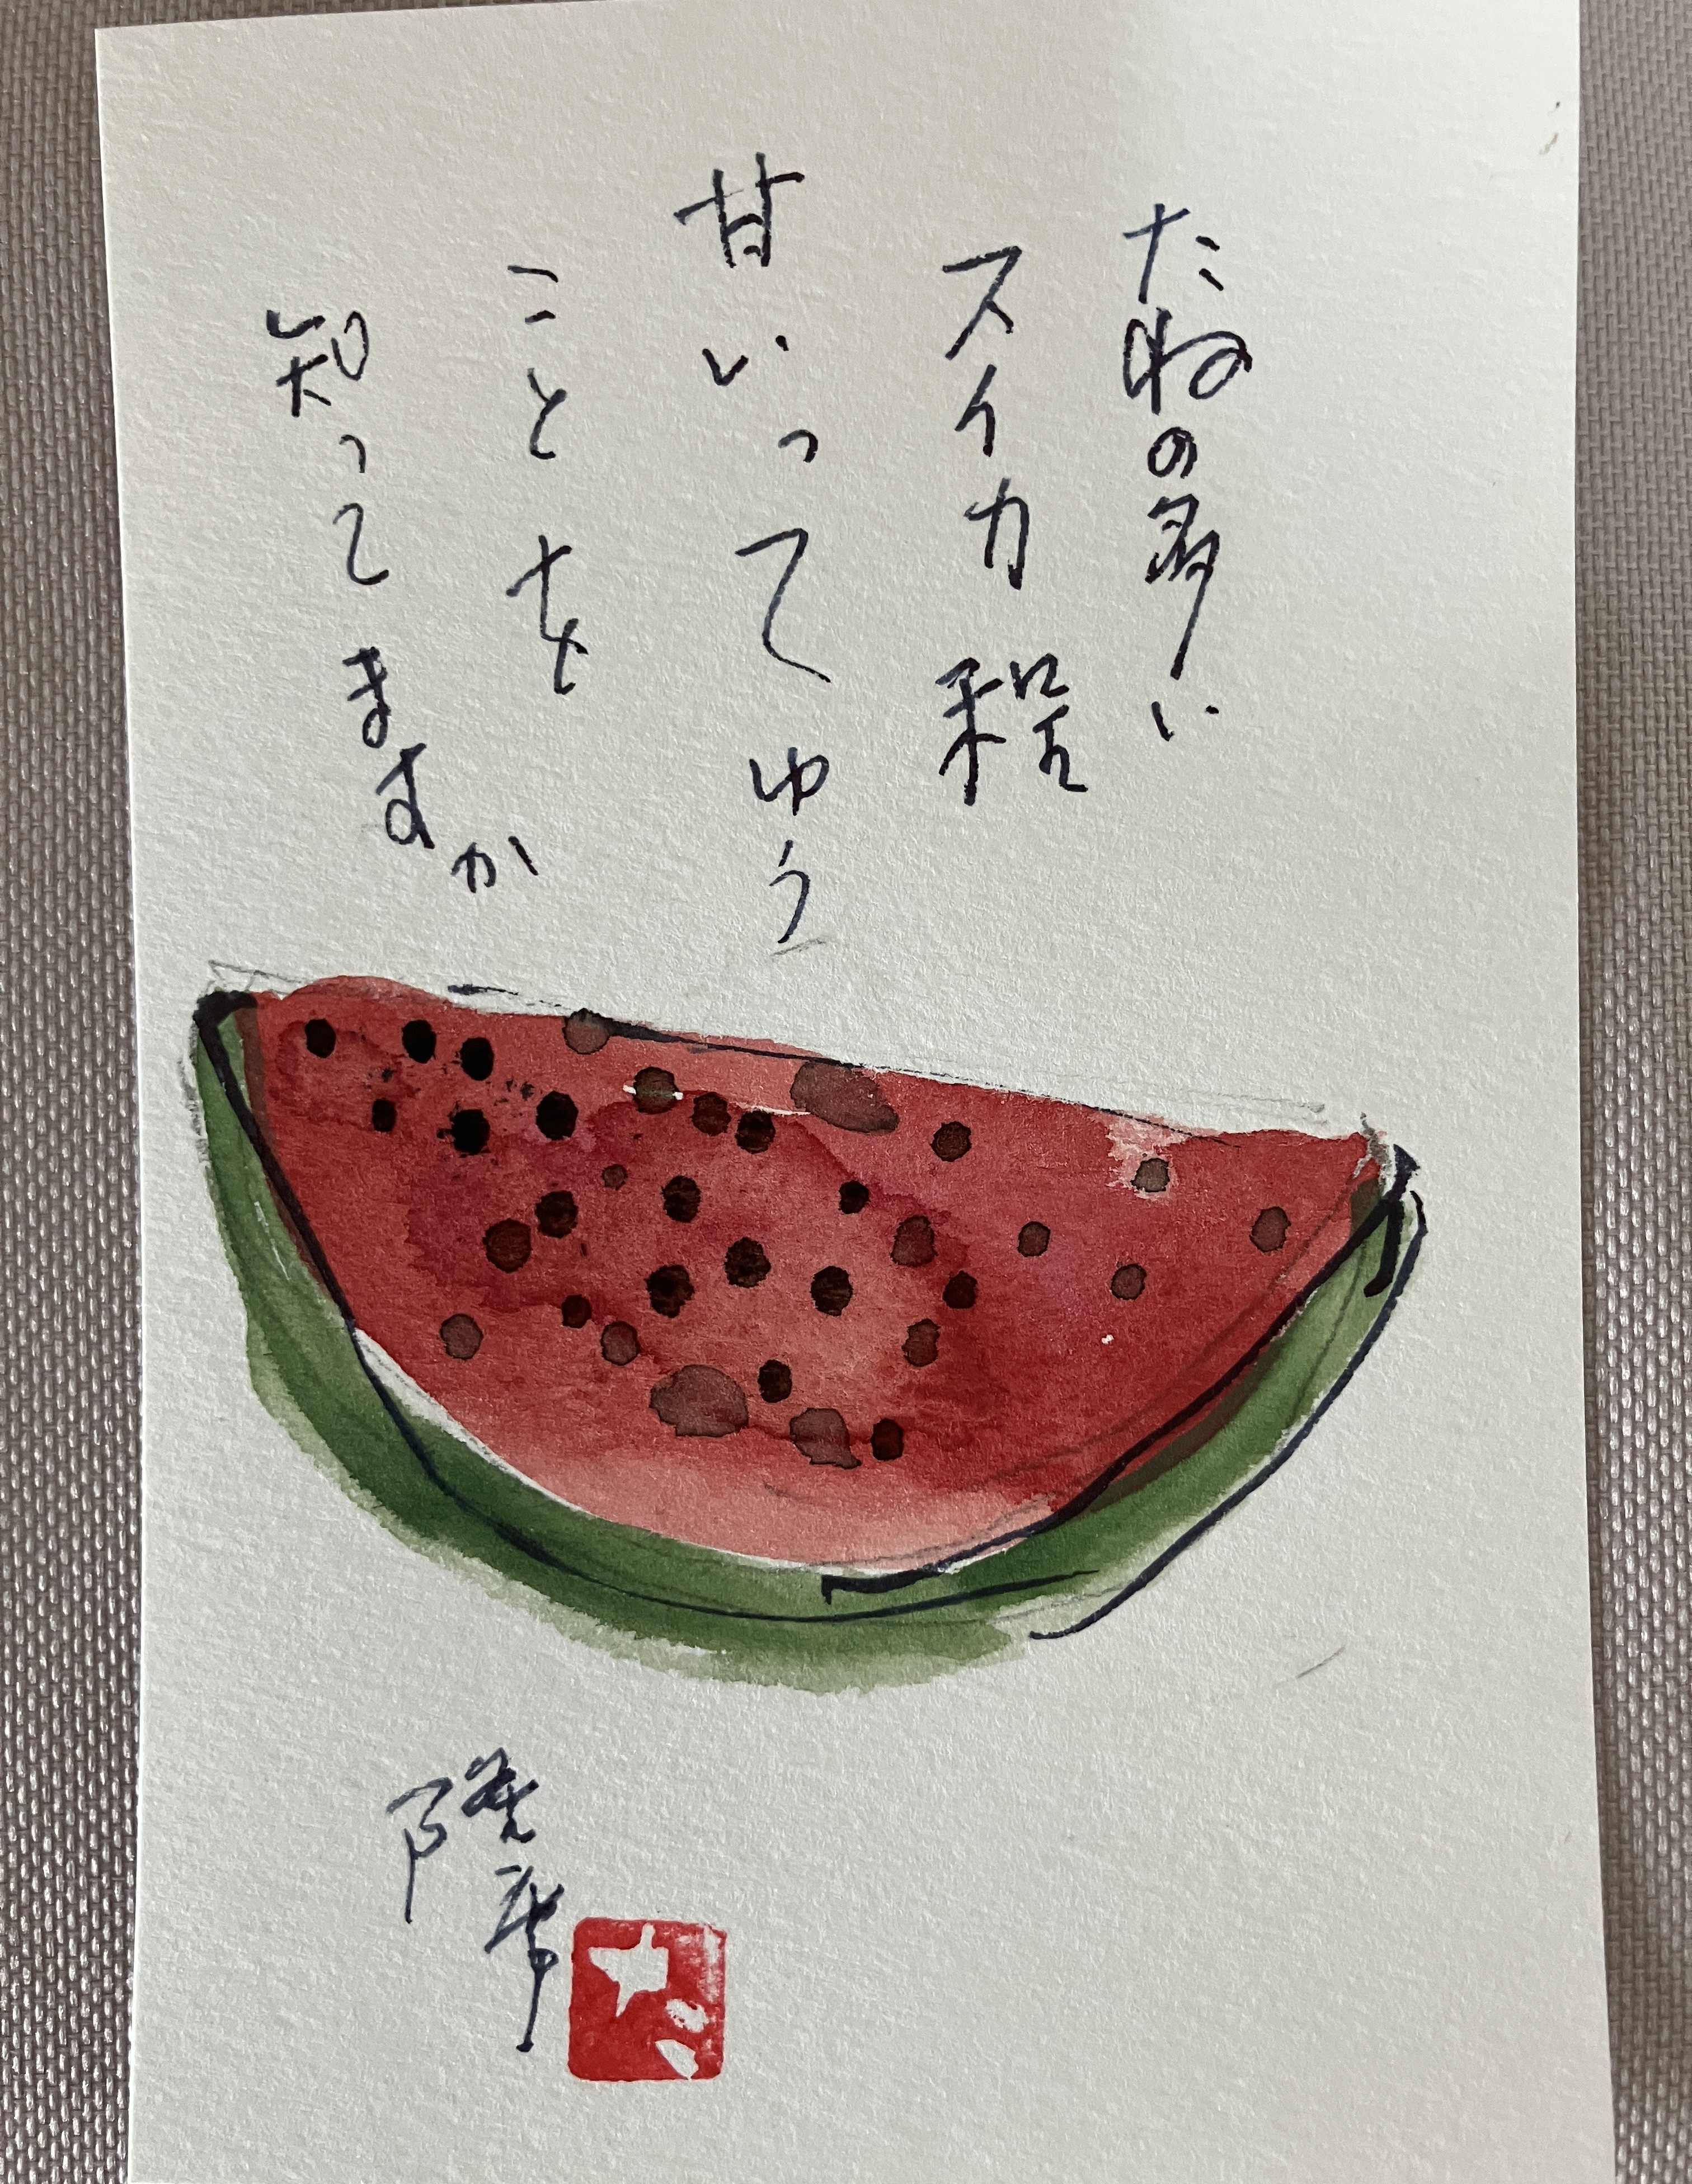 たねの多い
スイカ程
甘いってゆう
ことを
知ってますか